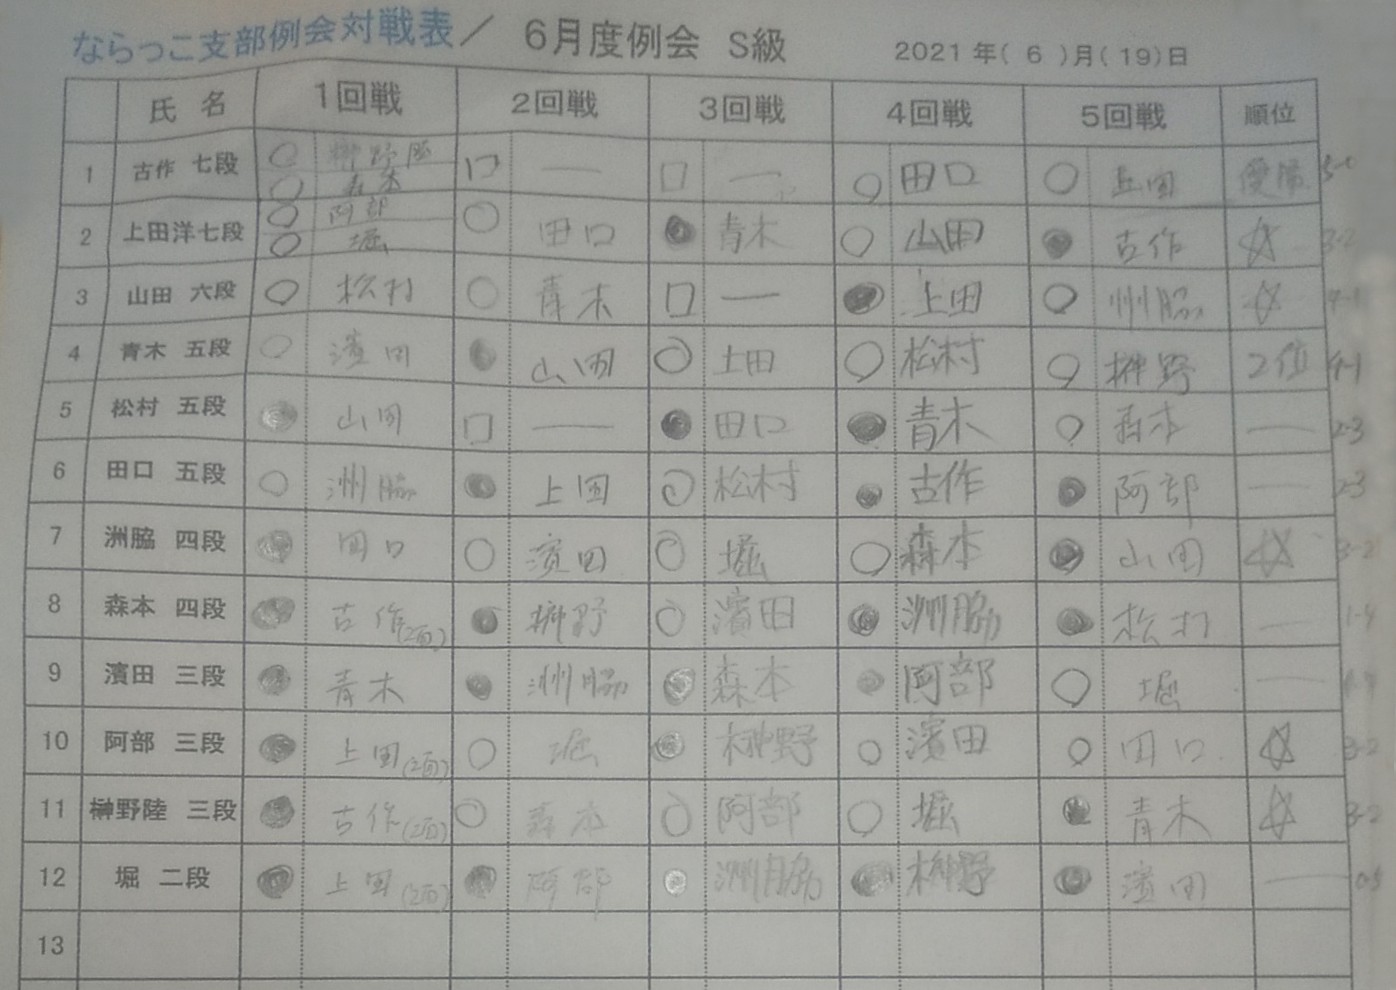 ならっこ支部例会対戦表／ 6月度例会 S級 2021年(6)月(19)日
氏名 1回戦 2回戦 3回戦 4回戦 5回戦 順位
1 古作 七段 ○ 榊野陸 ○ 森本 □ — □ — ○ 田口 ○ 上田 優勝 5-0
2 上田洋七段 ○ 阿部 ○ 堀 ○ 田口 ● 青木 ○ 山田 ● 古作 ☆ 3-2
3 山田 六段 ○ 松村 ○ 青木 □ — ● 上田 ○ 洲脇 ☆ 4-1
4 青木 五段 ○ 濱田 ● 山田 ○ 上田 ○ 松村 ○ 榊野 2位 4-1
5 松村 五段 ● 山田 □ — ● 田口 ● 青木 ○ 森本 — 2-3
6 田口 五段 ○ 洲脇 ● 上田 ○ 松村 ● 古作 ● 阿部 — 2-3
7 洲脇 四段 ● 田口 ○ 濱田 ○ 堀 ○ 森本 ● 山田 ☆ 3-2
8 森本 四段 ● 古作(2面) ● 榊野 ○ 濱田 ● 洲脇 ● 松村 — 1-4
9 濱田 三段 ● 青木 ● 洲脇 ● 森本 ● 阿部 ○ 堀 —
10 阿部 三段 ● 上田(2面) ○ 堀 ● 榊野 ○ 濱田 ○ 田口 ☆ 3-2
11 榊野陸 三段 ● 古作(2面) ○ 森本 ○ 阿部 ○ 堀 ● 青木 ☆ 3-2
12 堀 二段 ● 上田(2面) ● 阿部 ● 洲脇 ● 榊野 ● 濱田 — 0-5
13